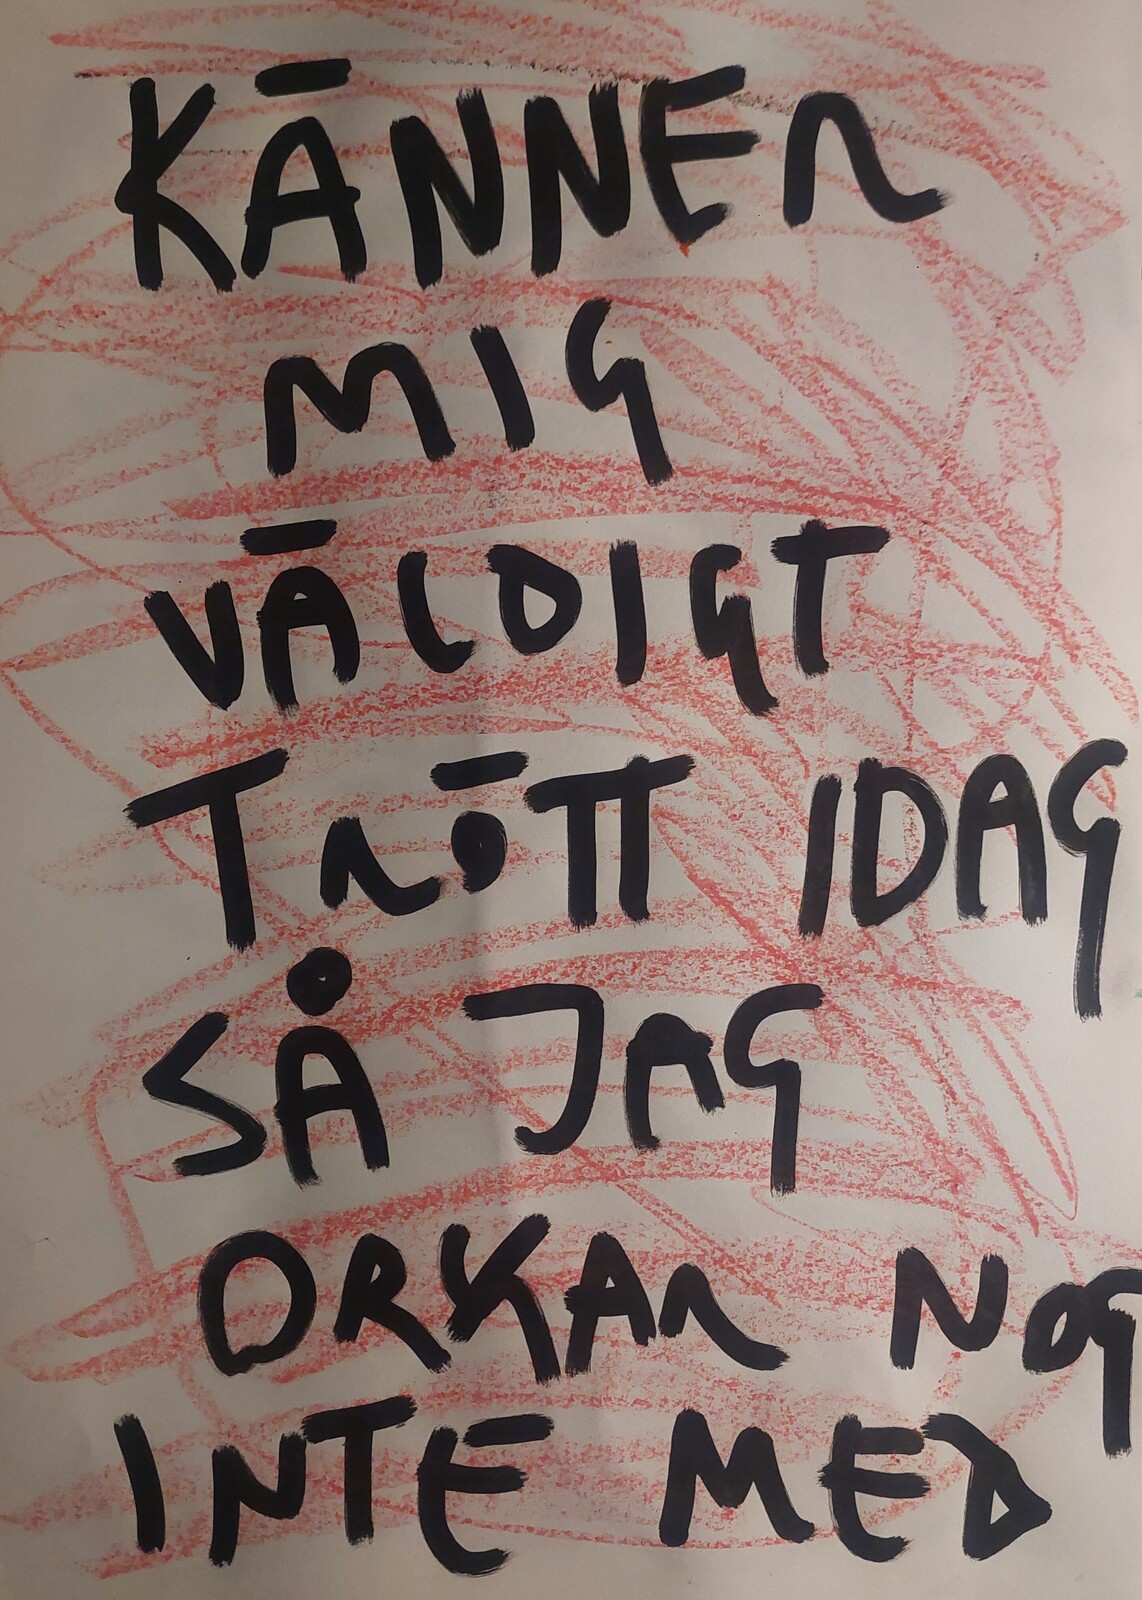 KÄNNER
MIG
VÄLDIGT
TRÖTT IDAG
SÅ JAG
ORKAR NOG
INTE MED